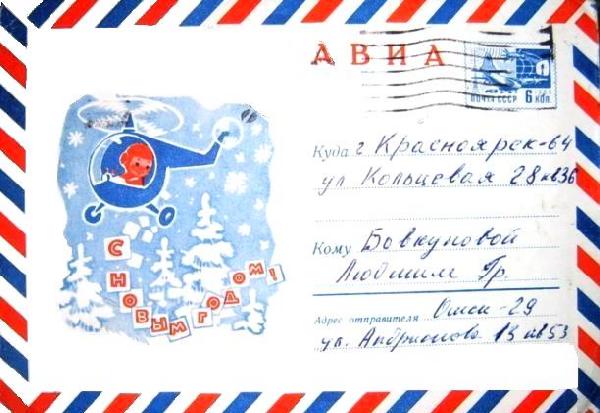 АВИА
ПОЧТА СССР 6 КОП
Куда г Красноярск-64
ул Кольцевая 28 кв36
Кому Бовкуновой
Людмиле Гр.
Адрес отправителя Омск-29
ул. Андрионова 13 кв53
С НОВЫМ ГОДОМ!